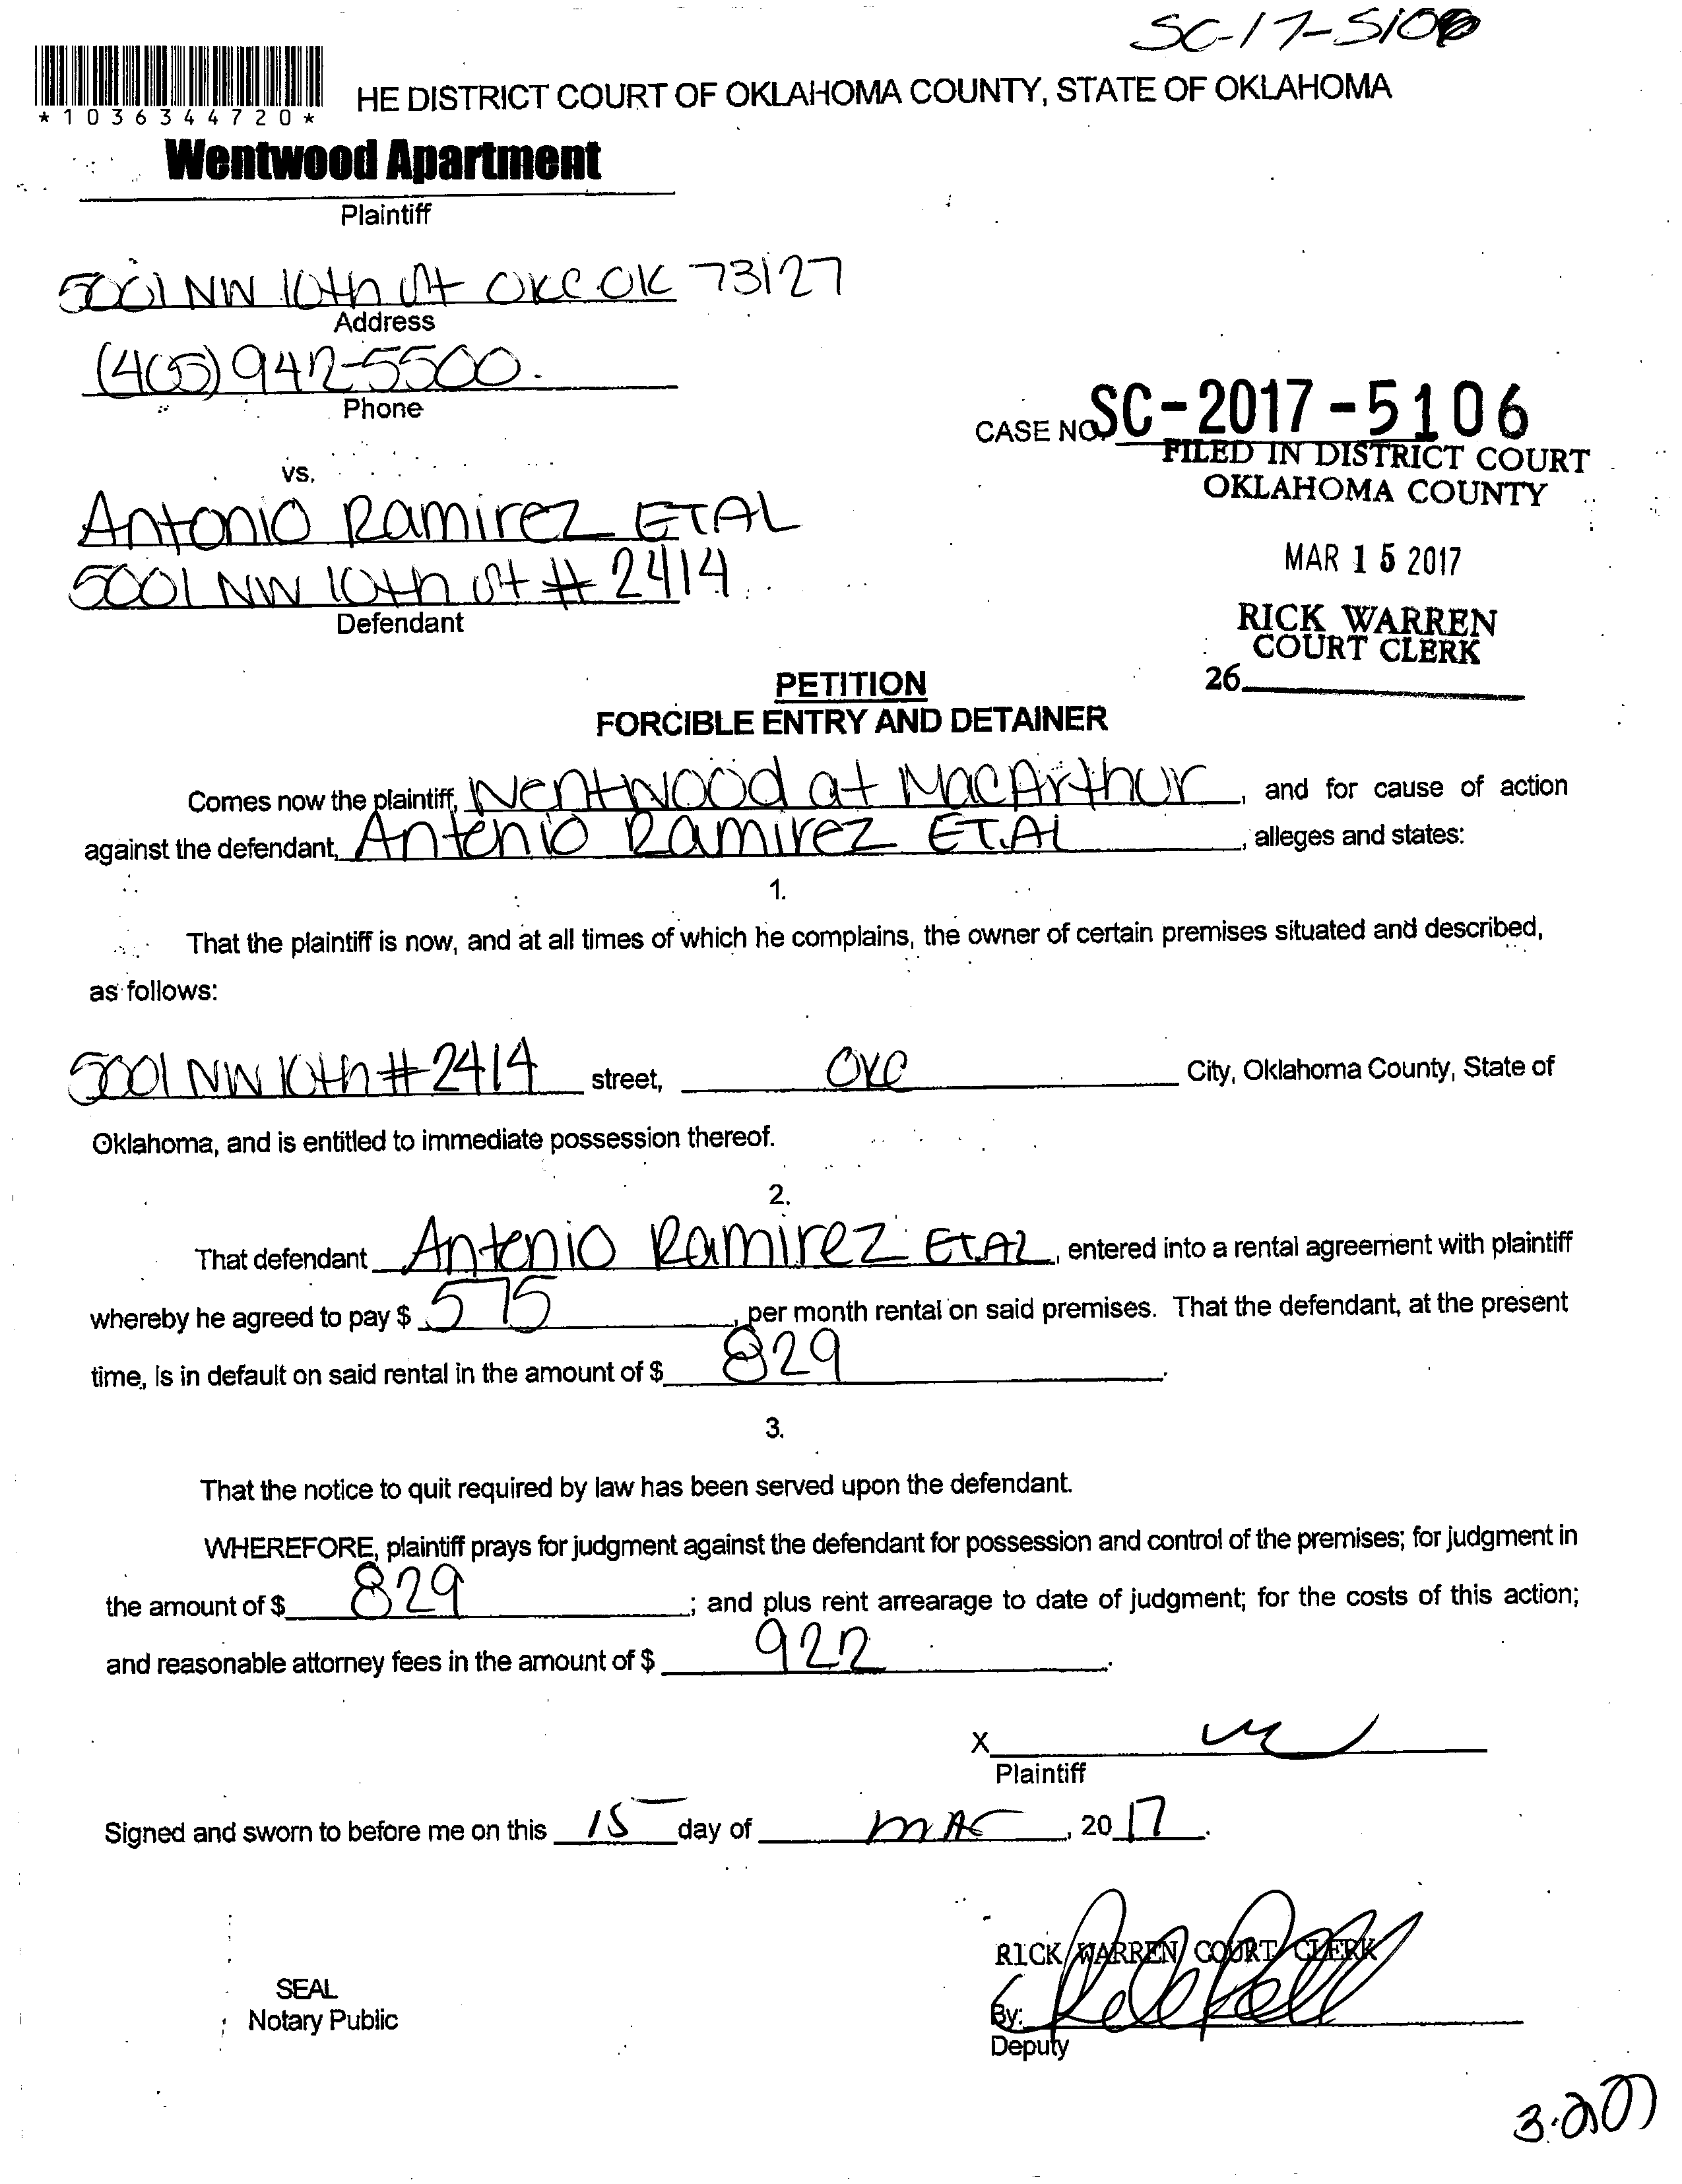 SC-17-5106
*1036344720*
HE DISTRICT COURT OF OKLAHOMA COUNTY, STATE OF OKLAHOMA
Wentwood Apartment
Plaintiff
5001 NW 10th St OKC OK 73127
Address
(405) 942-5500.
Phone
CASE NO. SC-2017-5106
FILED IN DISTRICT COURT
OKLAHOMA COUNTY
vs.
Antonio Ramirez ETAL
5001 NW 10th St # 2414
Defendant
MAR 15 2017
RICK WARREN
COURT CLERK
26
PETITION
FORCIBLE ENTRY AND DETAINER
Comes now the plaintiff, Wentwood at MacArthur, and for cause of action
against the defendant, Antonio Ramirez ET.Al, alleges and states:
1.
That the plaintiff is now, and at all times of which he complains, the owner of certain premises situated and described,
as follows:
5001 NW 10th # 2414 street, OKC City, Oklahoma County, State of
Oklahoma, and is entitled to immediate possession thereof.
2.
That defendant Antonio Ramirez ETAL, entered into a rental agreement with plaintiff
whereby he agreed to pay $ 575, per month rental on said premises. That the defendant, at the present
time, is in default on said rental in the amount of $ 829.
3.
That the notice to quit required by law has been served upon the defendant.
WHEREFORE, plaintiff prays for judgment against the defendant for possession and control of the premises; for judgment in
the amount of $ 829; and plus rent arrearage to date of judgment; for the costs of this action;
and reasonable attorney fees in the amount of $ 922.
X
Plaintiff
Signed and sworn to before me on this 15 day of MAR, 2017.
RICK WARREN COURT CLERK
SEAL
Notary Public
By:
Deputy